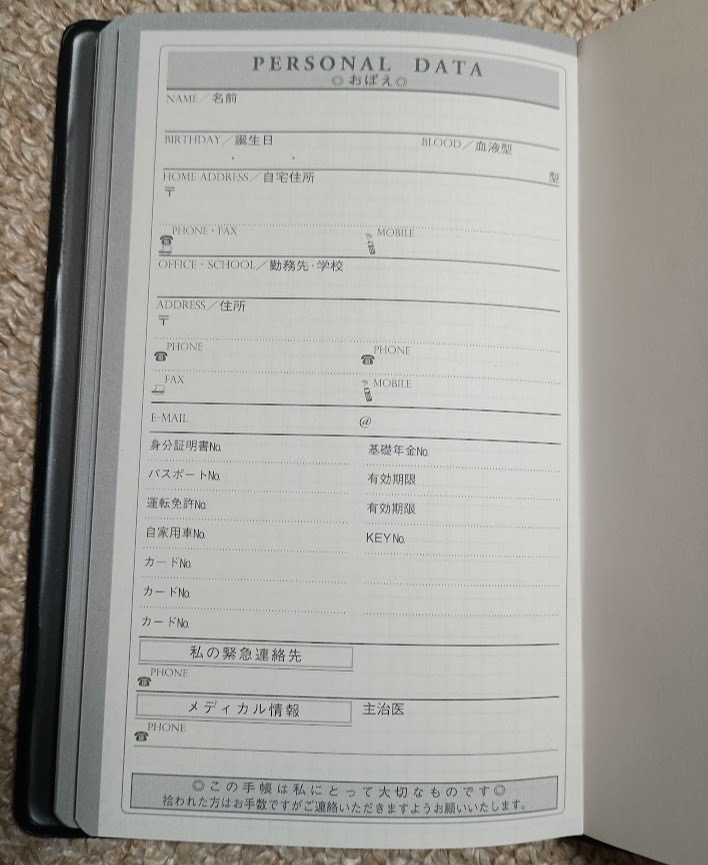 PERSONAL DATA
◎おぼえ◎
NAME／名前
BIRTHDAY／誕生日 BLOOD／血液型
・ ・ 型
HOME ADDRESS／自宅住所
〒
PHONE・FAX MOBILE
OFFICE・SCHOOL／勤務先・学校
ADDRESS／住所
〒
PHONE PHONE
FAX MOBILE
E-MAIL @
身分証明書No. 基礎年金No.
パスポートNo. 有効期限
運転免許No. 有効期限
自家用車No. KEY No.
カードNo.
カードNo.
カードNo.
私の緊急連絡先
PHONE
メディカル情報 主治医
PHONE
◎この手帳は私にとって大切なものです◎
拾われた方はお手数ですがご連絡いただきますようお願いいたします。